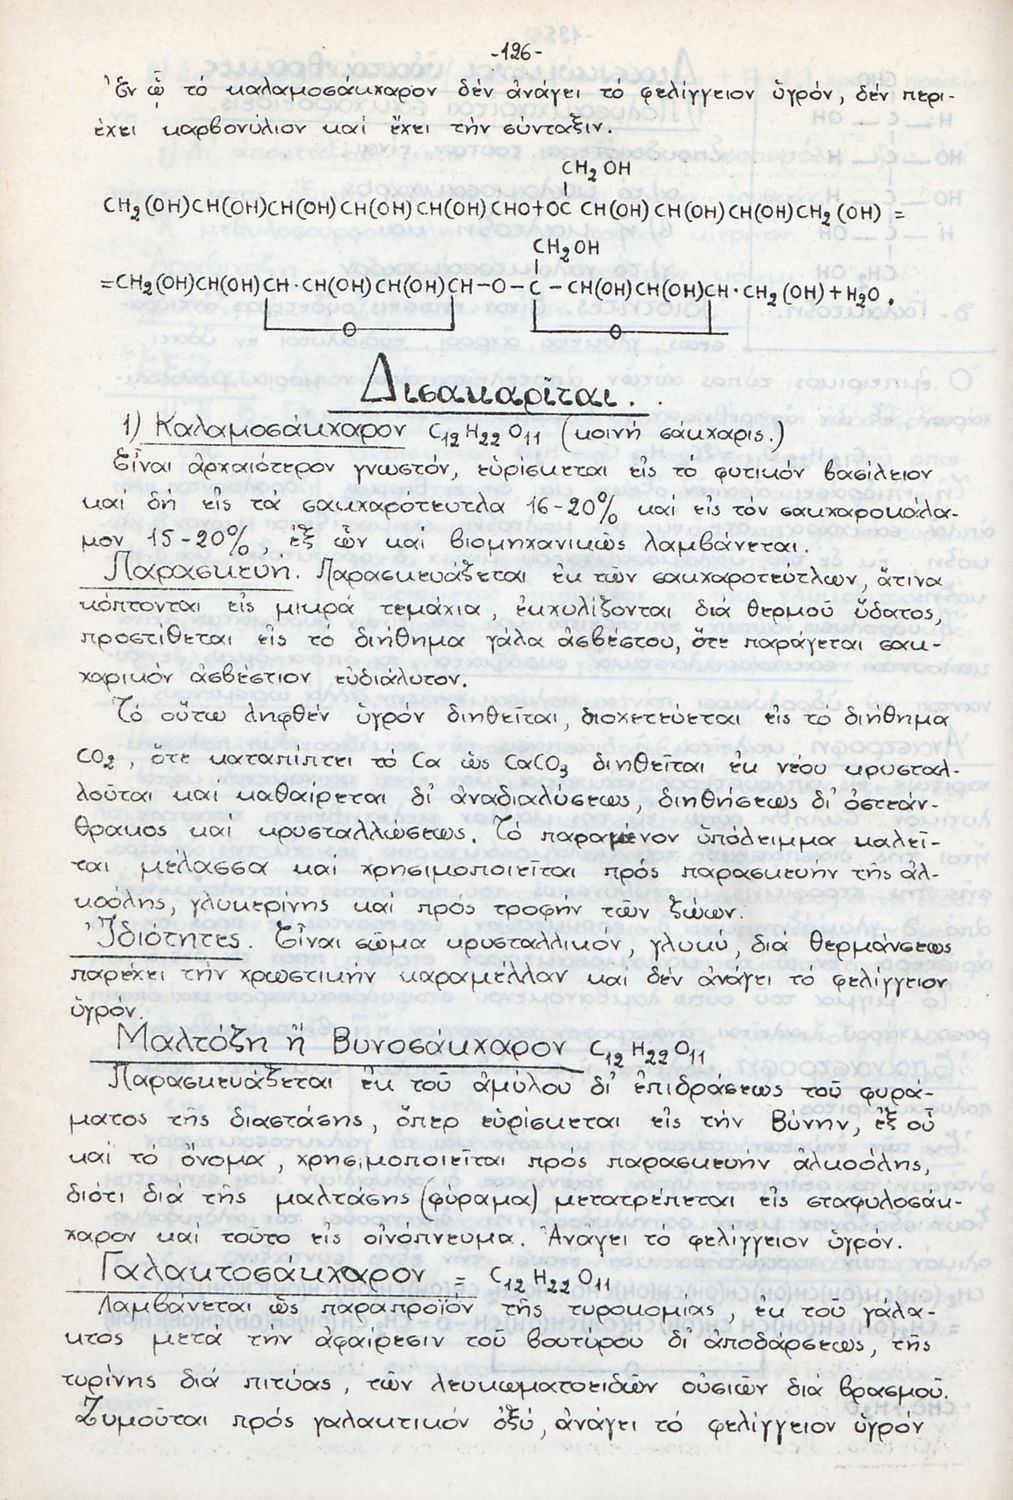 -126-
Ἐν ᾧ τό καλαμοσάκχαρον δέν ἀνάγει τό φελίγγειον ὑγρόν, δέν περι-
έχει καρβονύλιον καί ἔχει τήν σύνταξιν.
CH₂OH
CH₂(OH)CH(OH)CH(OH)CH(OH)CH(OH)CHO+OC CH(OH)CH(OH)CH(OH)CH₂(OH) =
CH₂OH
=CH₂(OH)CH(OH)CH·CH(OH)CH(OH)CH-O-C-CH(OH)CH(OH)CH·CH₂(OH)+H₂O.
O O
Δισακαρῖται.
1) Καλαμοσάκχαρον C₁₂H₂₂O₁₁ (κοινή σάκχαρις.)
Εἶναι ἀρχαιότερον γνωστόν, εὑρίσκεται εἰς τό φυτικόν βασίλειον
καί δή εἰς τά σακχαρότευτλα 16-20% καί εἰς τόν σακχαροκάλα-
μον 15-20%, ἐξ ὧν καί βιομηχανικῶς λαμβάνεται.
Παρασκευή. Παρασκευάζεται ἐκ τῶν σακχαροτεύτλων, ἅτινα
κόπτονται εἰς μικρά τεμάχια, ἐκχυλίζονται διά θερμοῦ ὕδατος,
προστίθεται εἰς τό διήθημα γάλα ἀσβέστου, ὅτε παράγεται σακ-
χαρικόν ἀσβέστιον εὐδιάλυτον.
Τό οὕτω ληφθέν ὑγρόν διηθεῖται, διοχετεύεται εἰς το διήθημα
CO₂, ὅτε καταπίπτει τό Ca ὡς CaCO₃ διηθεῖται ἐκ νέου κρυσταλ-
λοῦται καί καθαίρεται δι' ἀναδιαλύσεως, διηθήσεως δι' ὀστεάν-
θρακος καί κρυσταλλώσεως. Τό παραμένον ὑπόλειμμα καλεῖ-
ται μέλασσα καί χρησιμοποιεῖται πρός παρασκευήν τῆς ἀλ-
κοόλης, γλυκερίνης καί πρός τροφήν τῶν ζώων.
Ἰδιότητες. Εἶναι σῶμα κρυσταλλικόν, γλυκύ, διά θερμάνσεως
παρέχει τήν χρωστικήν καραμέλλαν καί δέν ἀνάγει τό φελίγγειον
ὑγρόν.
Μαλτόζη ἤ Βυνοσάκχαρον C₁₂H₂₂O₁₁
Παρασκευάζεται ἐκ τοῦ ἀμύλου δι' ἐπιδράσεως τοῦ φυρά-
ματος τῆς διαστάσης, ὅπερ εὑρίσκεται εἰς τήν Βύνην, ἐξ οὗ
καί το ὄνομα, χρησιμοποιεῖται πρός παρασκευήν ἀλκοόλης,
διότι διά τῆς μαλτάσης (φύραμα) μετατρέπεται εἰς σταφυλοσάκ-
χαρον καί τοῦτο εἰς οἰνόπνευμα. Ἀνάγει τό φελίγγειον ὑγρόν.
Γαλακτοσάκχαρον = C₁₂H₂₂O₁₁
Λαμβάνεται ὡς παραπροϊόν τῆς τυροκομίας, ἐκ τοῦ γάλα-
κτος μετά τήν ἀφαίρεσιν τοῦ βουτύρου δι' ἀποδάρσεως, τῆς
τυρίνης διά πιτύας, τῶν λευκωματοειδῶν οὐσιῶν διά βρασμοῦ.
Ζυμοῦται πρός γαλακτικόν ὀξύ, ἀνάγει τό φελίγγειον ὑγρόν